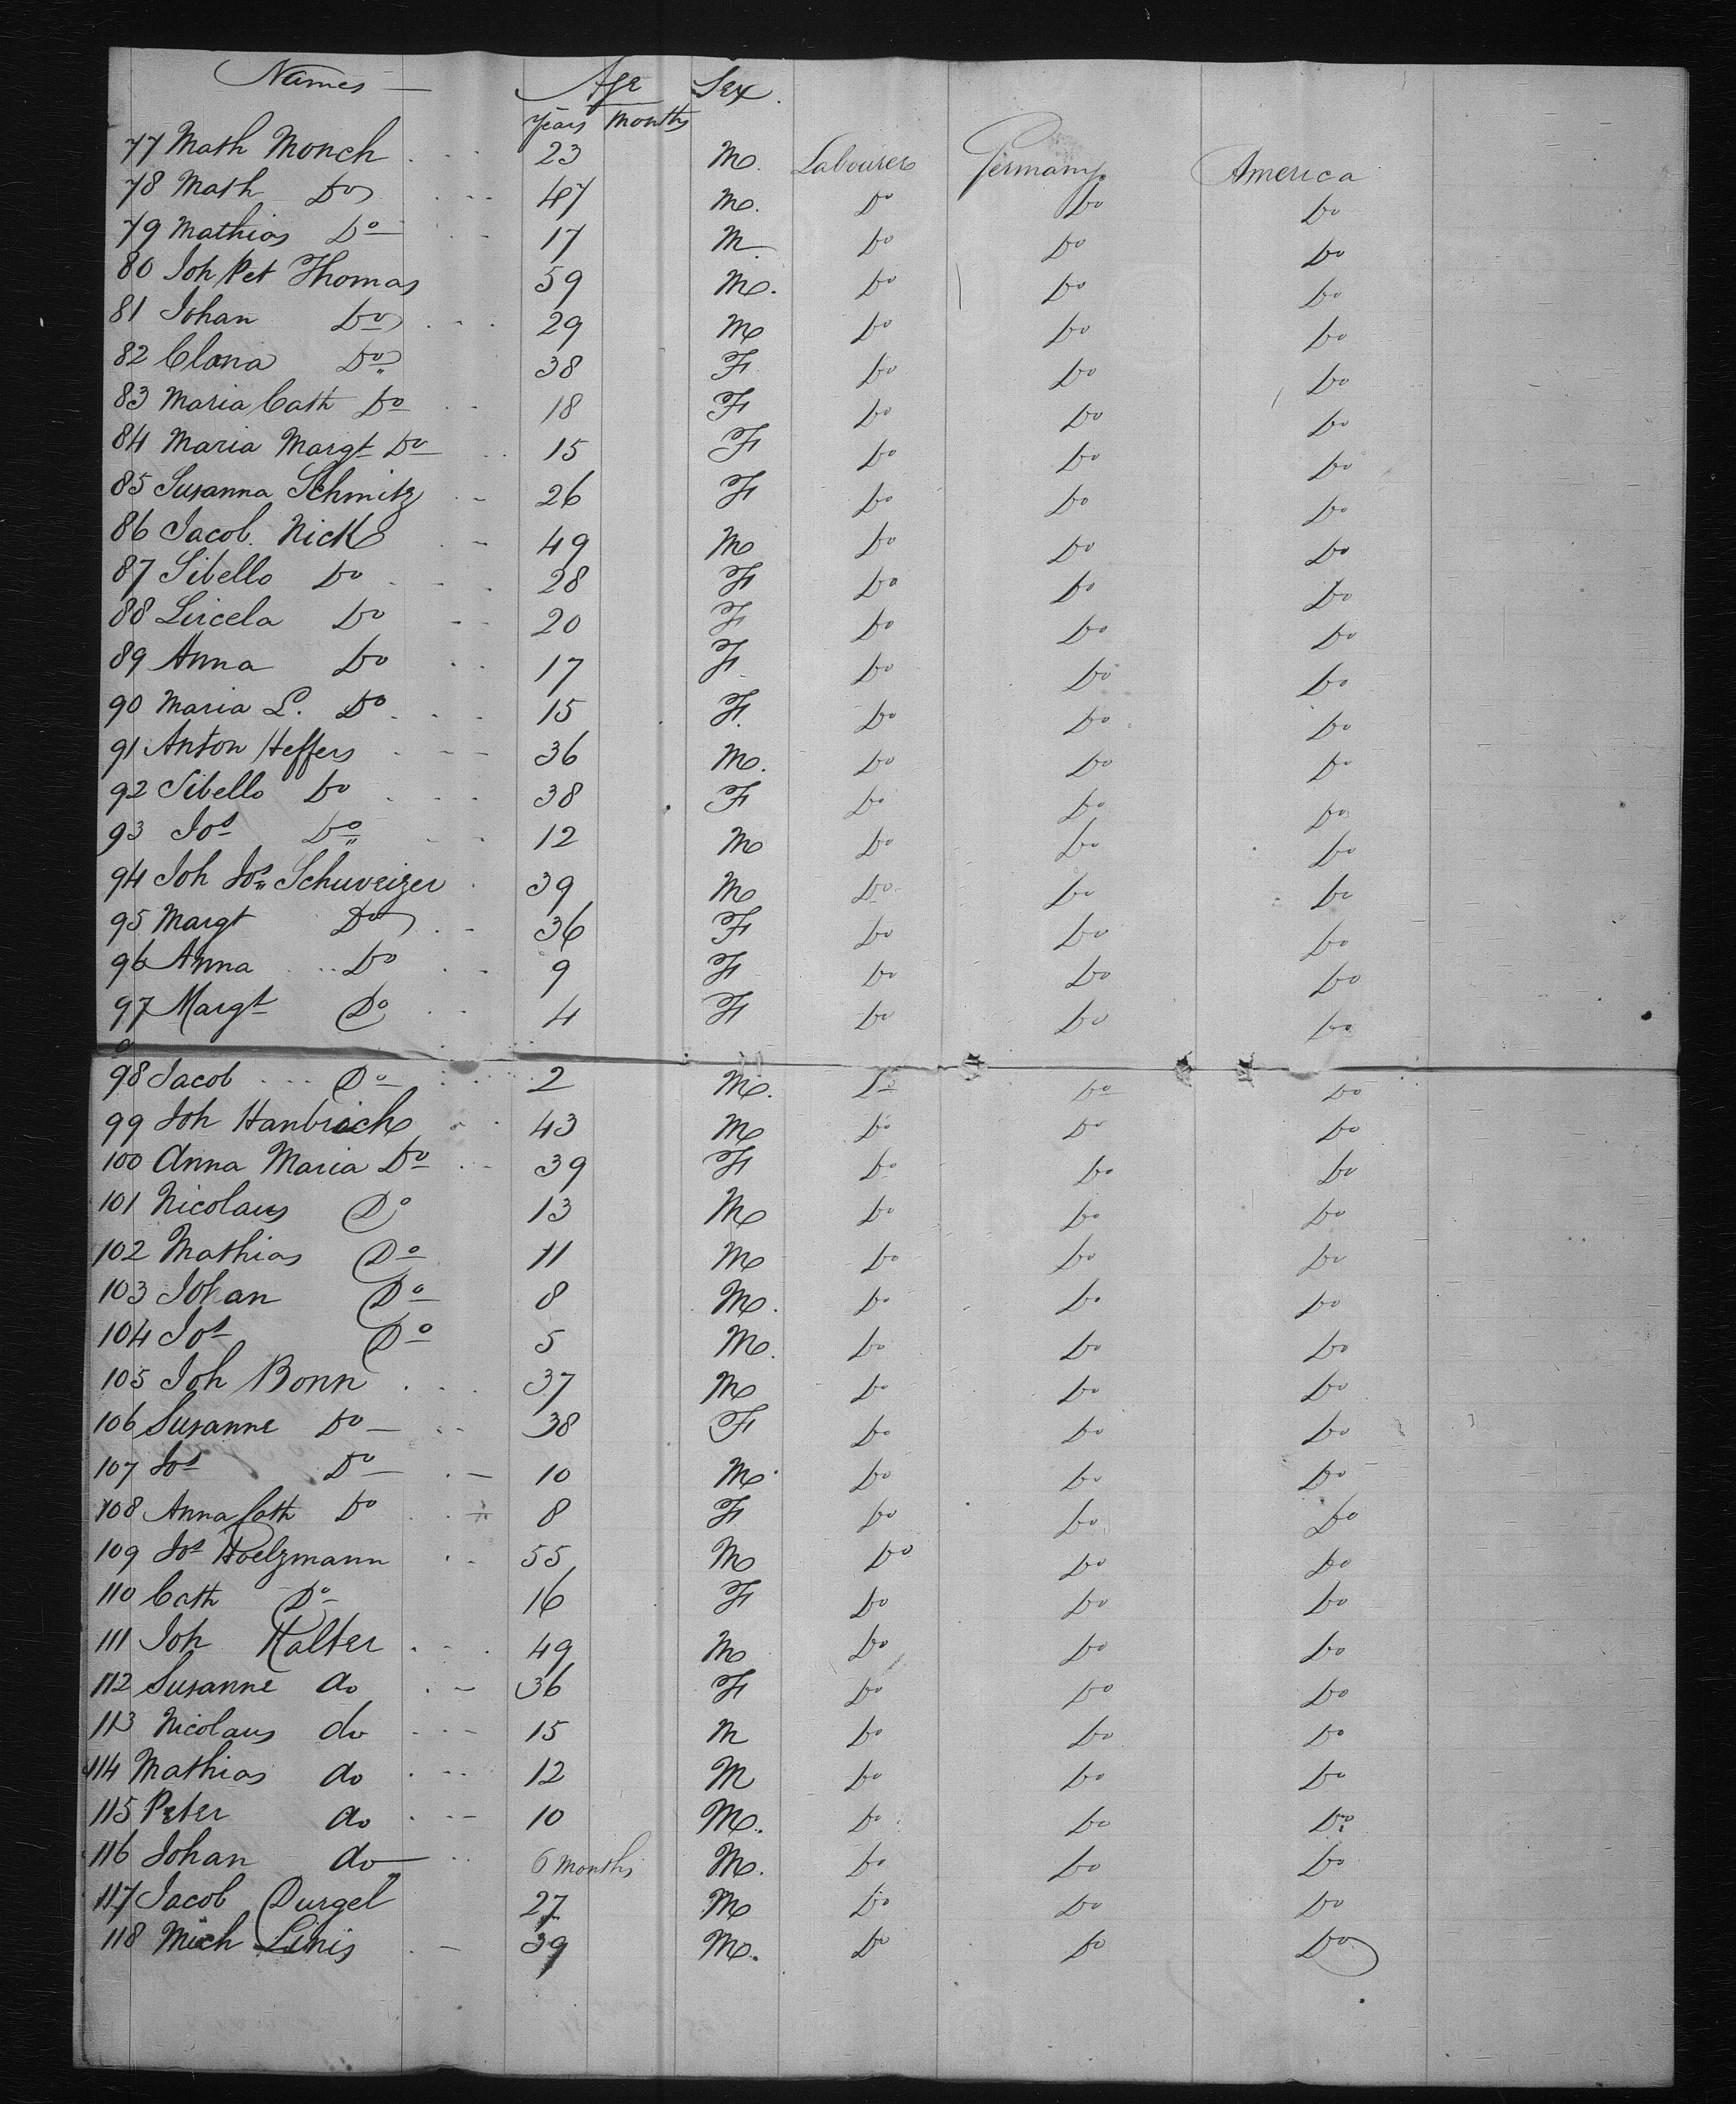 Names — Age Sex.
years months
77 Math Monch 23 M. Labourer Germany America
78 Math Do 47 M. Do Do Do
79 Mathias Do 17 M. Do Do Do
80 Joh Pet Thomas 59 M. Do Do Do
81 Johan Do 29 M Do Do Do
82 Clara Do 38 F Do Do Do
83 Maria Cath Do 18 F Do Do Do
84 Maria Margt Do 15 F Do Do Do
85 Susanna Schmitz 26 F Do Do Do
86 Jacob Nick 49 M Do Do Do
87 Sibella Do 28 F Do Do Do
88 Do 20 F Do Do Do
89 Anna Do 17 F Do Do Do
90 Maria L. Do 15 F. Do Do Do
91 Anton Heffers 36 M. Do Do Do
92 Sibella Do 38 F Do Do Do
93 Jos Do 12 M Do Do Do
94 Joh Jos Schuveizer 39 M Do Do Do
95 Margt Do 36 F Do Do Do
96 Anna Do 9 F Do Do Do
97 Margt Do 4 F Do Do Do
98 Jacob Do 2 M. Do Do Do
99 Joh Hanbrich 43 M Do Do Do
100 Anna Maria Do 39 F Do Do Do
101 Nicolaus Do 13 M Do Do Do
102 Mathias Do 11 M Do Do Do
103 Johan Do 8 M. Do Do Do
104 Jos Do 5 M. Do Do Do
105 Joh Bonn 37 M Do Do Do
106 Susanne Do 38 F Do Do Do
107 Jos Do 10 M. Do Do Do
108 Anna Cath Do 8 F Do Do Do
109 Jos Hoelzmann 55 M Do Do Do
110 Cath Do 16 F Do Do Do
111 Joh Kalter 49 M Do Do Do
112 Susanne do 36 F Do Do Do
113 Nicolaus do 15 M Do Do Do
114 Mathias do 12 M Do Do Do
115 Peter do 10 M. Do Do Do
116 Johan do 6 months M. Do Do Do
117 Jacob Durgel 27 M Do Do Do
118 Mich Linis 39 M. Do Do Do